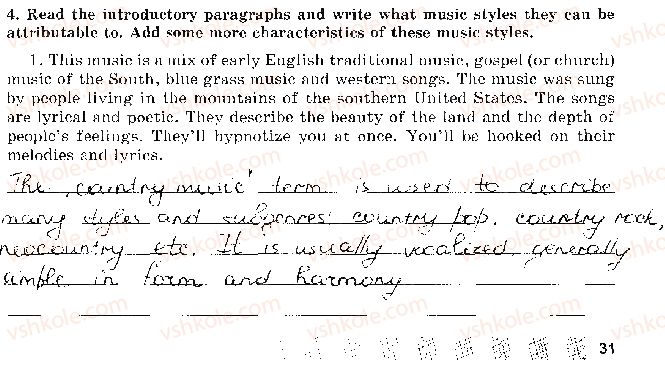 4. Read the introductory paragraphs and write what music styles they can be
attributable to. Add some more characteristics of these music styles.
1. This music is a mix of early English traditional music, gospel (or church)
music of the South, blue grass music and western songs. The music was sung
by people living in the mountains of the southern United States. The songs
are lyrical and poetic. They describe the beauty of the land and the depth of
people's feelings. They'll hypnotize you at once. You'll be hooked on their
melodies and lyrics.
The "country music" term is used to describe
many styles and subgenres: country pop, country rock,
neocountry etc. It is usually vocalized, generally
simple in form and harmony
31
vshkole.com